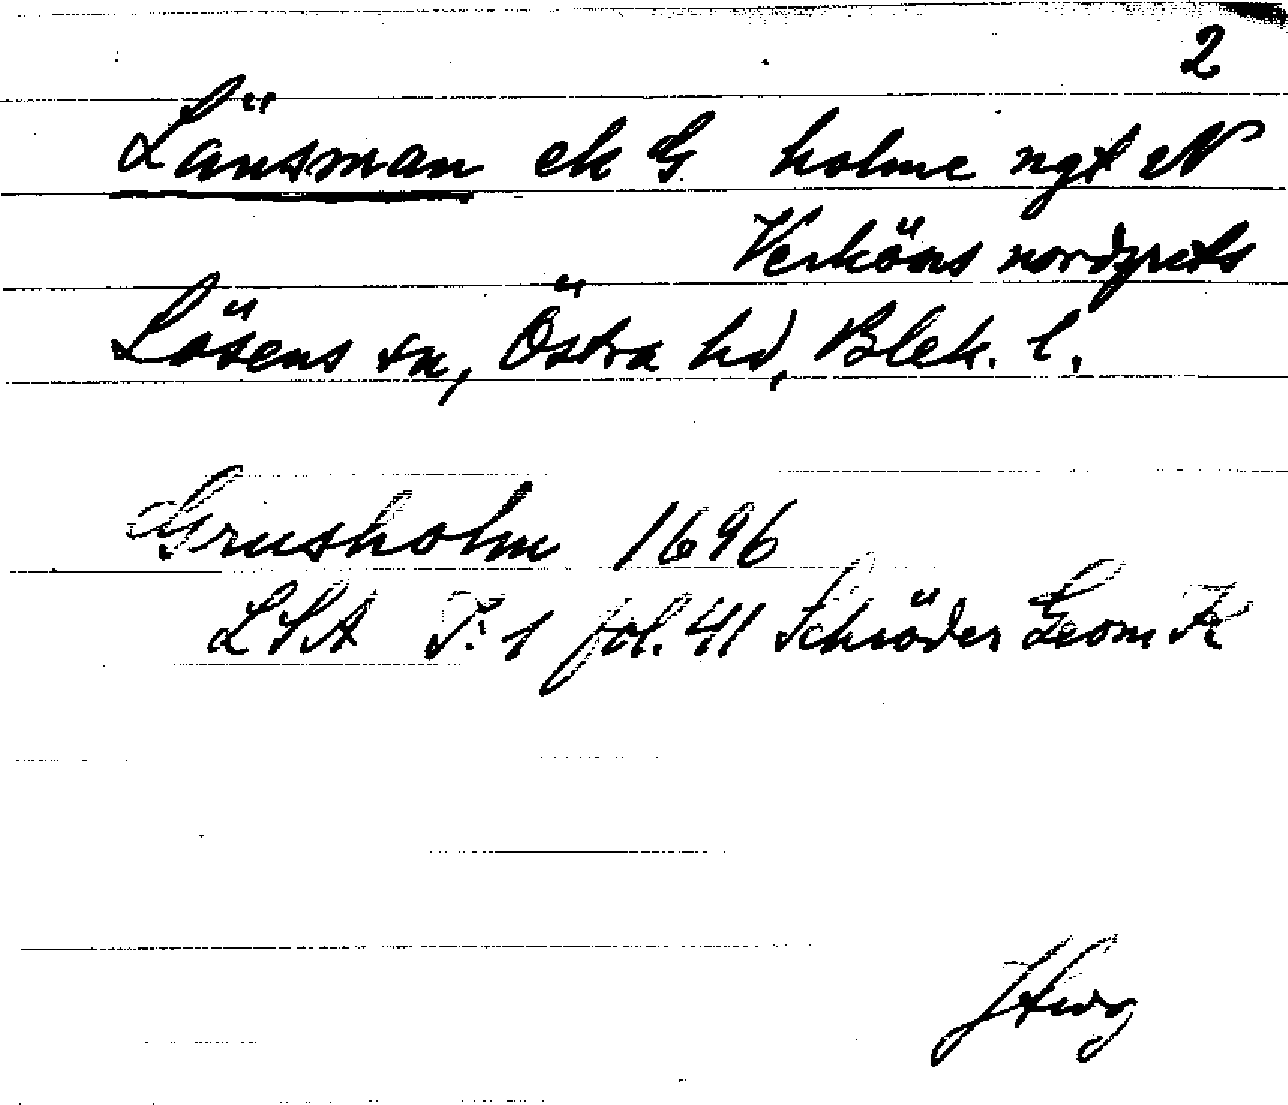 2
Länsman ek G holme ngt N
Verköns nordgräns
Lösens sn, Östra hd, Blek. l.
Grusholm 1696
LSA T:1 fol. 41 Schröder Geom K